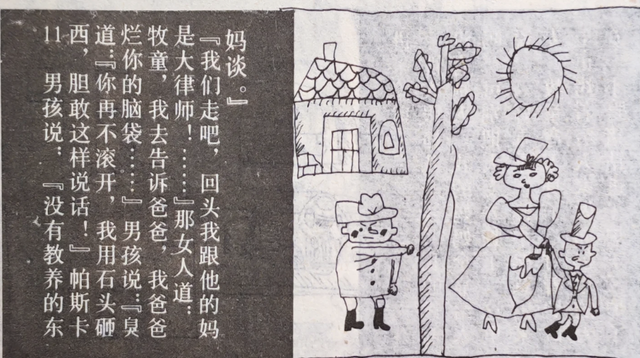 11 男孩说：『没有教养的东
西，胆敢这样说话！』帕斯卡
道：『你再不滚开，我用石头砸
烂你的脑袋……』男孩说：『臭
牧童，我去告诉爸爸，我爸爸
是大律师！……』那女人道：
『我们走吧，回头我跟他的妈
妈谈。』